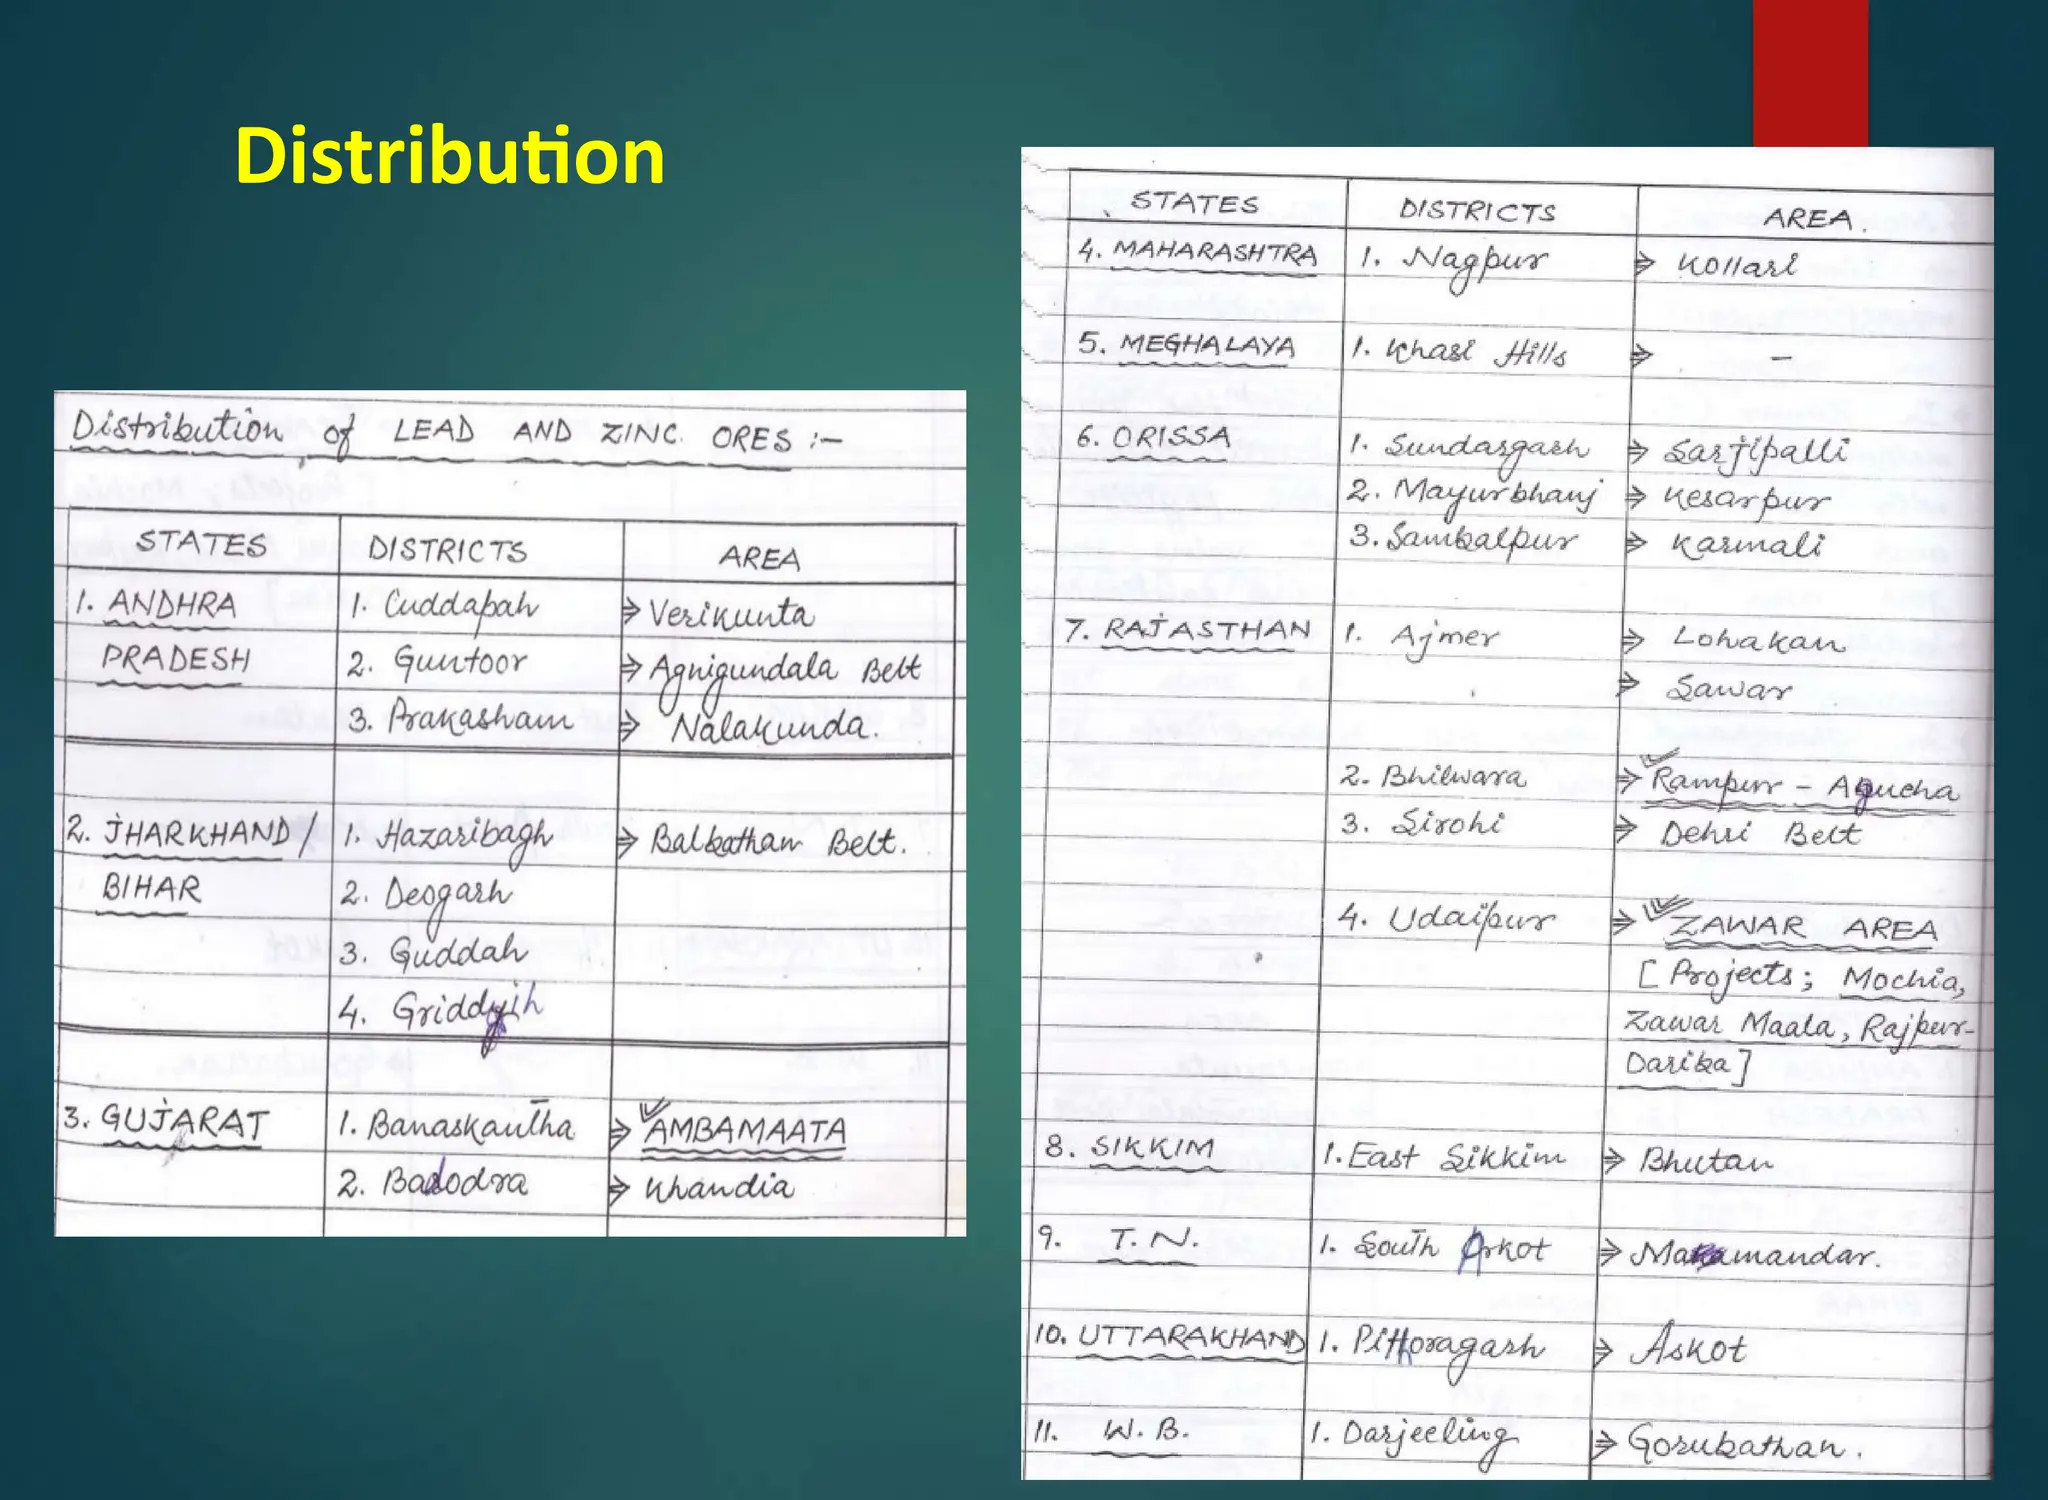 Distribution
Distribution of LEAD AND ZINC ORES :-
STATES DISTRICTS AREA
1. ANDHRA 1. Cuddapah ⇒ Verikunta
PRADESH 2. Guntoor ⇒ Agnigundala Belt
3. Prakasham ⇒ Nalakunda.
2. JHARKHAND/ 1. Hazaribagh ⇒ Balbatham Belt.
BIHAR 2. Deogarh
3. Guddah
4.
3. GUJARAT 1. Banaskantha ⇒ AMBAMAATA
2. Barodra ⇒ Khandia
STATES DISTRICTS AREA.
4. MAHARASHTRA 1. Nagpur ⇒ Kollari
5. MEGHALAYA 1. Khasi Hills ⇒ -
6. ORISSA 1. Sundargarh ⇒ Sarjipalli
2. Mayurbhanj ⇒ Kesarpur
3. Sambalpur ⇒ Karmali
7. RAJASTHAN 1. Ajmer ⇒ Lohakan
⇒ Sawar
2. Bhilwara ⇒ Rampur - Agucha
3. Sirohi ⇒ Dehri Belt
4. Udaipur ⇒ ZAWAR AREA
[ Projects; Mochia,
Zawar Maala, Rajpur-
Dariba]
8. SIKKIM 1. East Sikkim ⇒ Bhutan
9. T.N. 1. South Arkot ⇒
10. UTTARAKHAND 1. Pithoragarh ⇒ Askot
11. W.B. 1. Darjeeling ⇒ Gorubathan.